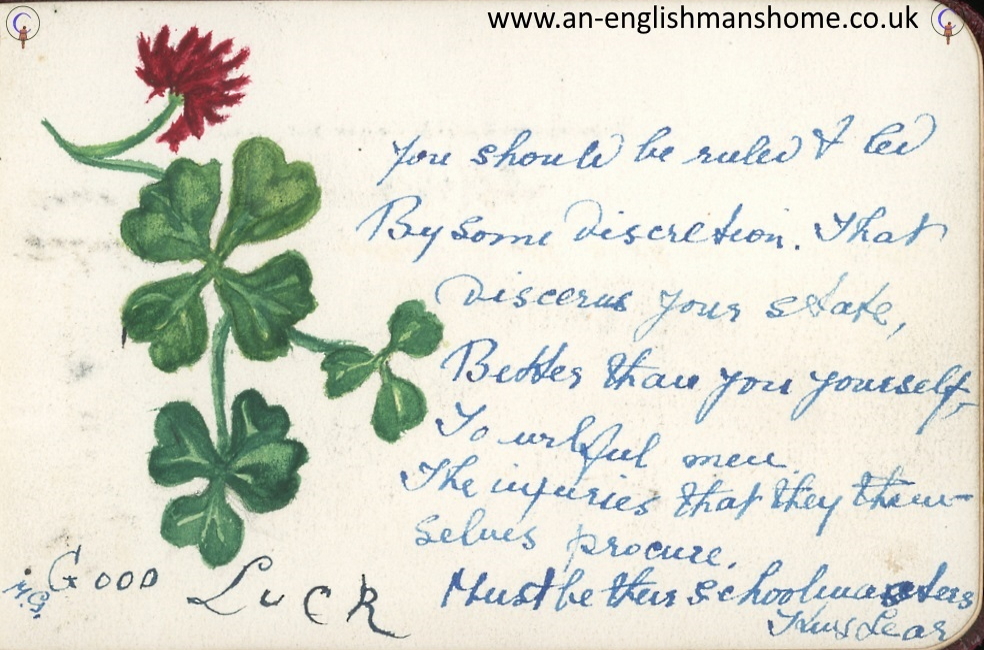 www.an-englishmanshome.co.uk
You should be ruled & led
By some discretion. That
discerns your state,
Better than you yourself,
To wilful men.
The injuries that they them-
selves procure.
Must be their schoolmasters
King Lear
Good Luck
M.G.